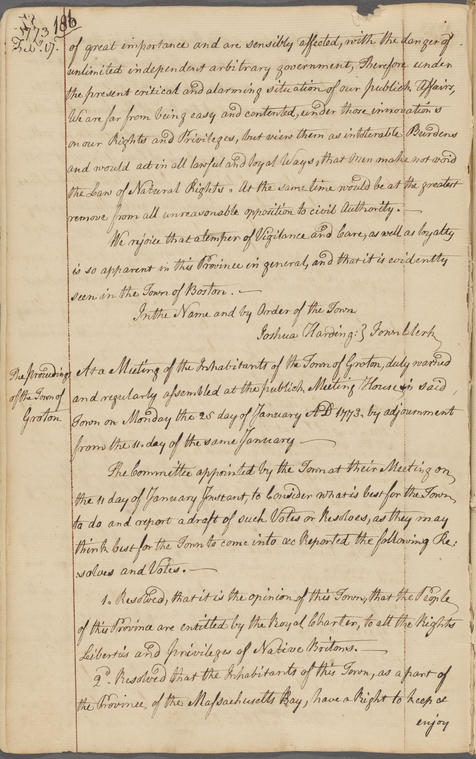 186
1773
of great importance and are sensibly affected, with the danger of
unlimited independent arbitrary government, Therefore under
the present critical and alarming situation of our publick Affairs,
We are far from being easy and contented, under those innovations
on our Rights and Privileges, but view them as intolerable Burdens
and would act in all lawful and loyal Ways, that Men make not void
the Law of Natural Rights. At the same time would be at the greatest
remove from all unreasonable opposition to civil Authority. —
We rejoice that a temper of Vigilance and Care, as well as loyalty
is so apparent in this Province in general, and that it is evidently
seen in the Town of Boston. —
In the Name and by Order of the Town
Joshua Harding: } Town Clerk
The Proceedings
of the Town of
Groton
At a Meeting of the Inhabitants of the Town of Groton, duly warned
and regularly assembled at the publick Meeting House in said
Town on Monday the 25 day of January AD 1773. by adjournment
from the 11. day of the same January —
The Committee appointed by the Town at their Meeting on
the 11 day of January Instant, to Consider what is best for the Town
to do and report a draft of such Votes or Resolves, as they may
think best for the Town to come into &c Reported the following Re:
solves and Votes. —
1. Resolved, that it is the opinion of this Town, that the People
of this Province are entitled by the Royal Charter, to all the Rights
Liberties and privileges of Native Britons. —
2d. Resolved that the Inhabitants of this Town, as a part of
the Province, of the Massachusetts Bay, have a Right to keep &
enjoy